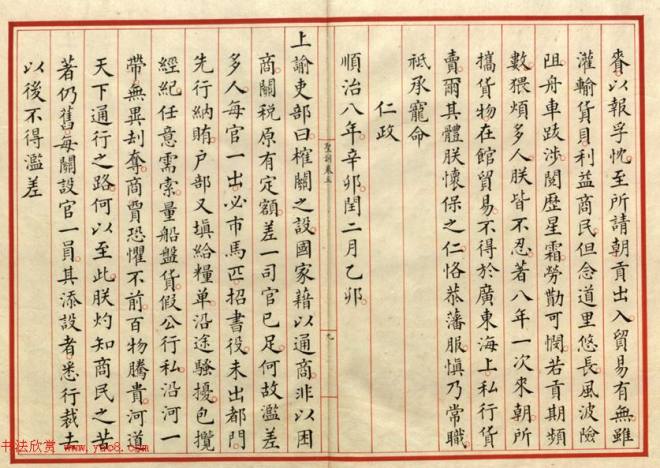 賚以報孚忱至所請朝貢出入貿易有無雖
灌輸貨貝利益商民但念道里悠長風波險
阻舟車跋涉閱歷星霜勞勩可憫若貢期頻
數猥煩多人朕皆不忍著八年一次來朝所
攜貨物在館貿易不得於廣東海上私行貨
賣爾其體朕懷保之仁恪恭藩服慎乃常職
祗承寵命
仁政
順治八年辛卯閏二月乙卯
聖訓卷五
上諭吏部曰榷關之設國家藉以通商非以困
商關税原有定額差一司官已足何故濫差
多人每官一出必市馬匹招書役未出都門
先行納賄户部又填給糧单沿途騷擾包攬
經紀任意需索量船盤貨假公行私沿河一
帶無異刦奪商賈恐懼不前百物騰貴河道
天下通行之路何以至此朕灼知商民之苦
著仍舊每關設官一員其添設者悉行裁去
以後不得濫差
书法欣赏 www.yac8.com